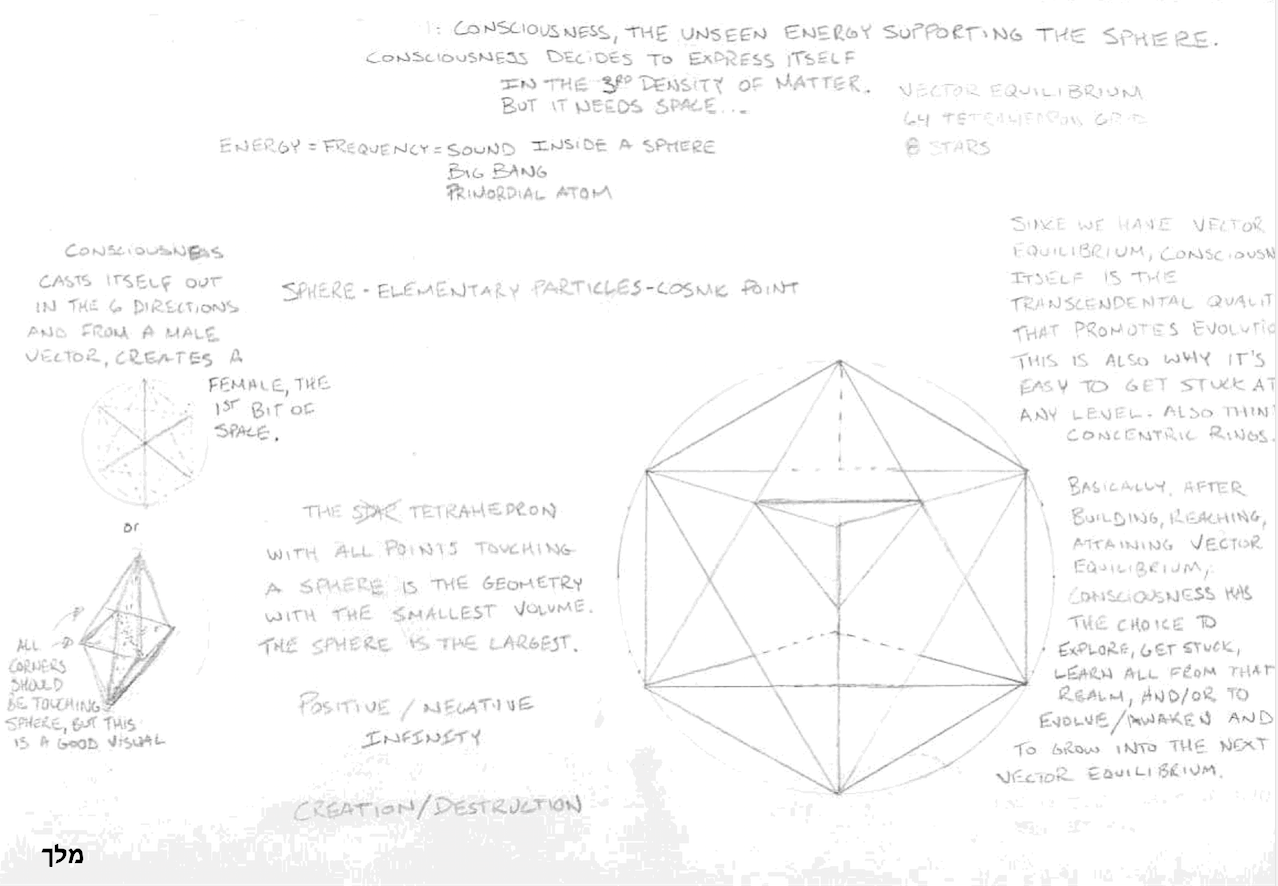 1: CONSCIOUSNESS, THE UNSEEN ENERGY SUPPORTING THE SPHERE.
CONSCIOUSNESS DECIDES TO EXPRESS ITSELF
IN THE 3RD DENSITY OF MATTER.
BUT IT NEEDS SPACE...
VECTOR EQUILIBRIUM
64 TETRAHEDRON GRID
8 STARS
ENERGY = FREQUENCY = SOUND INSIDE A SPHERE
BIG BANG
PRIMORDIAL ATOM
CONSCIOUSNESS
CASTS ITSELF OUT
IN THE 6 DIRECTIONS
AND FROM A MALE
VECTOR, CREATES A
FEMALE, THE
1ST BIT OF
SPACE.
or
ALL
CORNERS
SHOULD
BE TOUCHING
SPHERE, BUT THIS
IS A GOOD VISUAL
SPHERE - ELEMENTARY PARTICLES - COSMIC POINT
THE STAR TETRAHEDRON
WITH ALL POINTS TOUCHING
A SPHERE IS THE GEOMETRY
WITH THE SMALLEST VOLUME.
THE SPHERE IS THE LARGEST.
POSITIVE / NEGATIVE
INFINITY
CREATION/DESTRUCTION
SINCE WE HAVE VECTOR
EQUILIBRIUM, CONSCIOUSN
ITSELF IS THE
TRANSCENDENTAL QUALIT
THAT PROMOTES EVOLUTIO
THIS IS ALSO WHY IT'S
EASY TO GET STUCK AT
ANY LEVEL. ALSO THIN
CONCENTRIC RINGS.
BASICALLY, AFTER
BUILDING, REACHING,
ATTAINING VECTOR
EQUILIBRIUM,
CONSCIOUSNESS HAS
THE CHOICE TO
EXPLORE, GET STUCK,
LEARN ALL FROM THAT
REALM, AND/OR TO
EVOLVE/AWAKEN AND
TO GROW INTO THE NEXT
VECTOR EQUILIBRIUM.
מלך